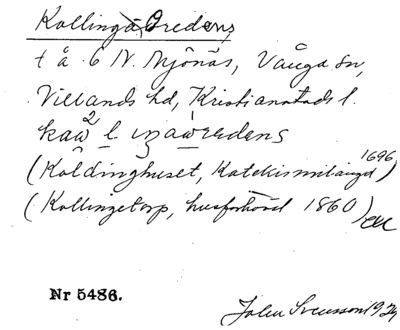 Kollinga Gredens
t å 6 N. Mjönäs, Vånga sn,
Villands hd, Kristianstads l.
(Koldinghuset, Katekismilängd 1696)
(Kollingetorp, husförhörsl 1860)
Nr 5486.
John Svensson 1924